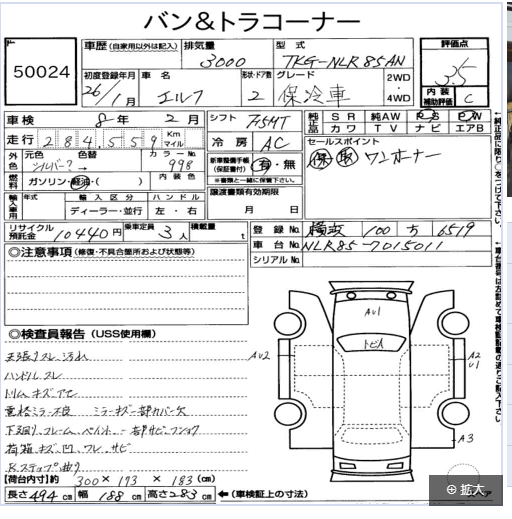 バン&トラコーナー
50024
車歴 (自家用以外は記入)
排気量 3000
型式 TKG-NLR85AN
評価点 3.5
初度登録年月 26/1月
車名 エルフ
形状・ドア数 2
グレード 保冷車
2WD・4WD
内装補助評価 C
車検 8年2月
シフト F5MT
純正品 SR 純AW PS PW
カワ TV ナビ エアB
走行 284,559 Km マイル
冷房 AC
セールスポイント
保 取 ワンオーナー
外色 元色 シルバー? 色替 → カラーNo. 998
新車整備手帳(保証書付) 有・無
※書類と一緒に保管下さい。
燃料 ガソリン・軽油・( )
内装色
譲渡書類有効期限
月 日
輸入車用 年式 輸入区分 ハンドル
ディーラー・並行 左・右
リサイクル預託金 10440円
乗車定員 3人
積載量 t
登録No. 100 ち 6519
車台No. NLR85-7015011
シリアルNo.
◎注意事項 (修復・不具合箇所および状態等)
◎検査員報告 (USS使用欄)
天張りスレ、汚れ
ハンドルスレ
トリム キズ アセ
ミラーキズ 一部カバー欠
下廻り、フレーム、ペイント
荷箱、キズ、凹、ワレ、サビ
Rステップ曲り
AU1
トビA
AU2
A2
U1
A3
【荷台内寸】約 300 × 173 × 183 (cm)
長さ 494 cm 幅 188 cm 高さ 283 cm ←(車検証上の寸法)
拡大